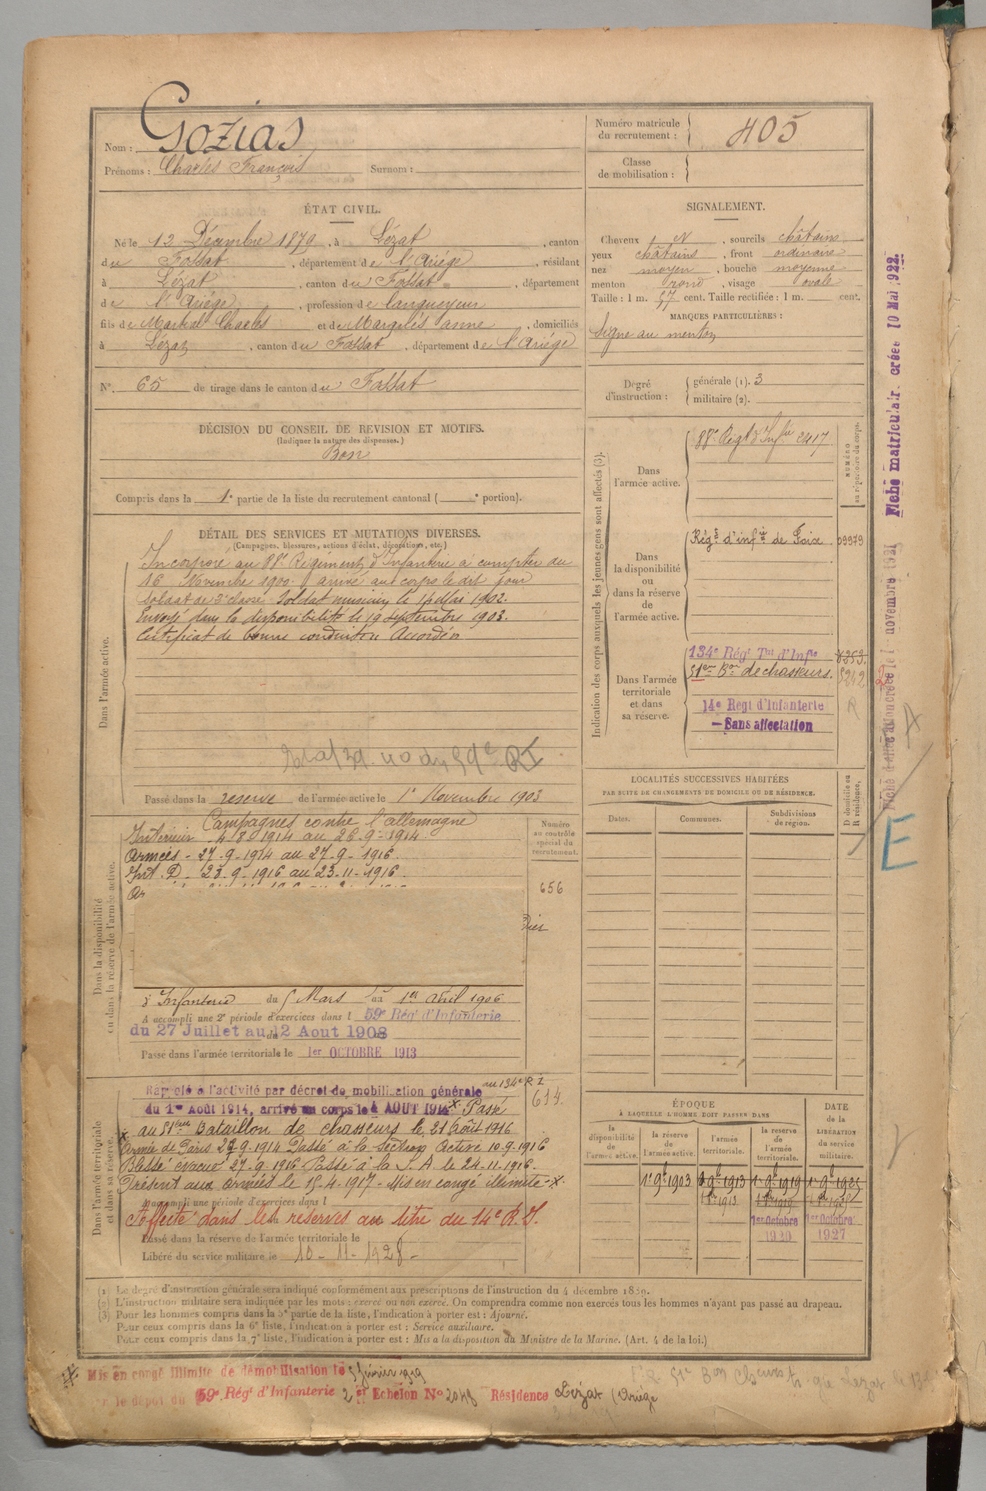 Nom : Gozias
Prénoms : Charles François Surnom :
Numéro matricule du recrutement : 405
Classe de mobilisation :
ÉTAT CIVIL.
Né le 12 Décembre 1879, à Lézat, canton
du Fossat, département de l'Ariège, résidant
à Lézat, canton du Fossat, département
de l'Ariège, profession de langueyeur
fils de Martial Charles et de Margelis anne, domiciliés
à Lézat, canton du Fossat, département de l'Ariège
N° 65 de tirage dans le canton du Fossat
SIGNALEMENT.
Cheveux N, sourcils châtains
yeux châtains, front ordinaire
nez moyen, bouche moyenne
menton rond, visage ovale
Taille : 1 m. 57 cent. Taille rectifiée : 1 m. cent.
MARQUES PARTICULIÈRES :
Signe au menton
Degré d'instruction : générale (1). 3
militaire (2).
DÉCISION DU CONSEIL DE REVISION ET MOTIFS.
(Indiquer la nature des dispenses.)
Bon
Compris dans la 1e partie de la liste du recrutement cantonal ( e portion).
DÉTAIL DES SERVICES ET MUTATIONS DIVERSES.
(Campagnes, blessures, actions d'éclat, décorations, etc.)
Dans l'armée active.
Incorporé au 88e Régiment d'Infanterie à compter du
16 Novembre 1900 arrivé au corps le dit jour
Soldat de 2e classe. Soldat musicien le 1 Mai 1902.
Envoyé dans la disponibilité le 19 septembre 1903.
Certificat de bonne conduite Accordé
59e RI
Passé dans la reserve de l'armée active le 1er Novembre 1903
Indication des corps auxquels les jeunes gens sont affectés (3).
NUMÉRO au répertoire du corps.
Dans l'armée active.
88e Regt d'Infie 2417
Dans la disponibilité ou dans la réserve de l'armée active.
Régt d'infie de Foix 09979
Dans l'armée territoriale et dans sa réserve.
134e Régt Tal d'Infie
51eme Bon de chasseurs. 5242
14e Régt d'Infanterie
— Sans affectation
LOCALITÉS SUCCESSIVES HABITÉES
PAR SUITE DE CHANGEMENTS DE DOMICILE OU DE RÉSIDENCE.
Dates. Communes. Subdivisions de région. D domicile ou R résidence.
Dans la disponibilité ou dans la réserve de l'armée active.
Numéro au contrôle spécial du recrutement.
Campagnes contre l'allemagne
Intérieur 4-8-1914 au 26-9-1914.
Armées - 27-9-1914 au 27-9-1916.
Int. D - 23-9-1916 au 23-11-1916.
656
d'Infanterie du 5 Mars au 1er avril 1906
A accompli une 2e période d'exercices dans l 59e Rég d'Infanterie
du 27 Juillet au 12 Aout 1908
Passé dans l'armée territoriale le 1er OCTOBRE 1913
Dans l'armée territoriale et dans sa réserve.
Rappelé à l'activité par décret de mobilisation générale au 134e R I
du 1er Août 1914, arrivé au corps le 4 AOUT 1914 x Passé
614
au 51eme Bataillon de chasseurs le 21 août 1916
Armée de Paris 27-9-1914 Passé à la section Active 10-9-1916
Passé évacué 27-9-1916 Passé à la S. A le 24-11-1916.
Présent aux armées le 15-4-1917 - Mis en congé illimité -x-
A accompli une période d'exercices dans l
Affecté dans les reserves au titre du 14e R.I.
Passé dans la réserve de l'armée territoriale le
Libéré du service militaire le 10-11-1928-
ÉPOQUE
À LAQUELLE L'HOMME DOIT PASSER DANS
DATE de la LIBÉRATION du service militaire.
la disponibilité de l'armée active. la réserve de l'armée active. l'armée territoriale. la réserve de l'armée territoriale.
1er 9bre 1903
1er Octobre 1920
1er Octobre 1927
(1) Le degré d'instruction générale sera indiqué conformément aux prescriptions de l'instruction du 4 décembre 1889.
(2) L'instruction militaire sera indiquée par les mots : exercé ou non exercé. On comprendra comme non exercés tous les hommes n'ayant pas passé au drapeau.
(3) Pour les hommes compris dans la 5e partie de la liste, l'indication à porter est : Ajourné.
Pour ceux compris dans la 6e liste, l'indication à porter est : Service auxiliaire.
Pour ceux compris dans la 7e liste, l'indication à porter est : Mis à la disposition du Ministre de la Marine. (Art. 4 de la loi.)
Mis en congé illimité de démobilisation le 5 février 1919
le dépôt du 59e Rég d'Infanterie 2 Echelon N° 2048 Résidence Lézat (Ariège
Fiche matriculaire créée 10 Mai 1922.
A
E